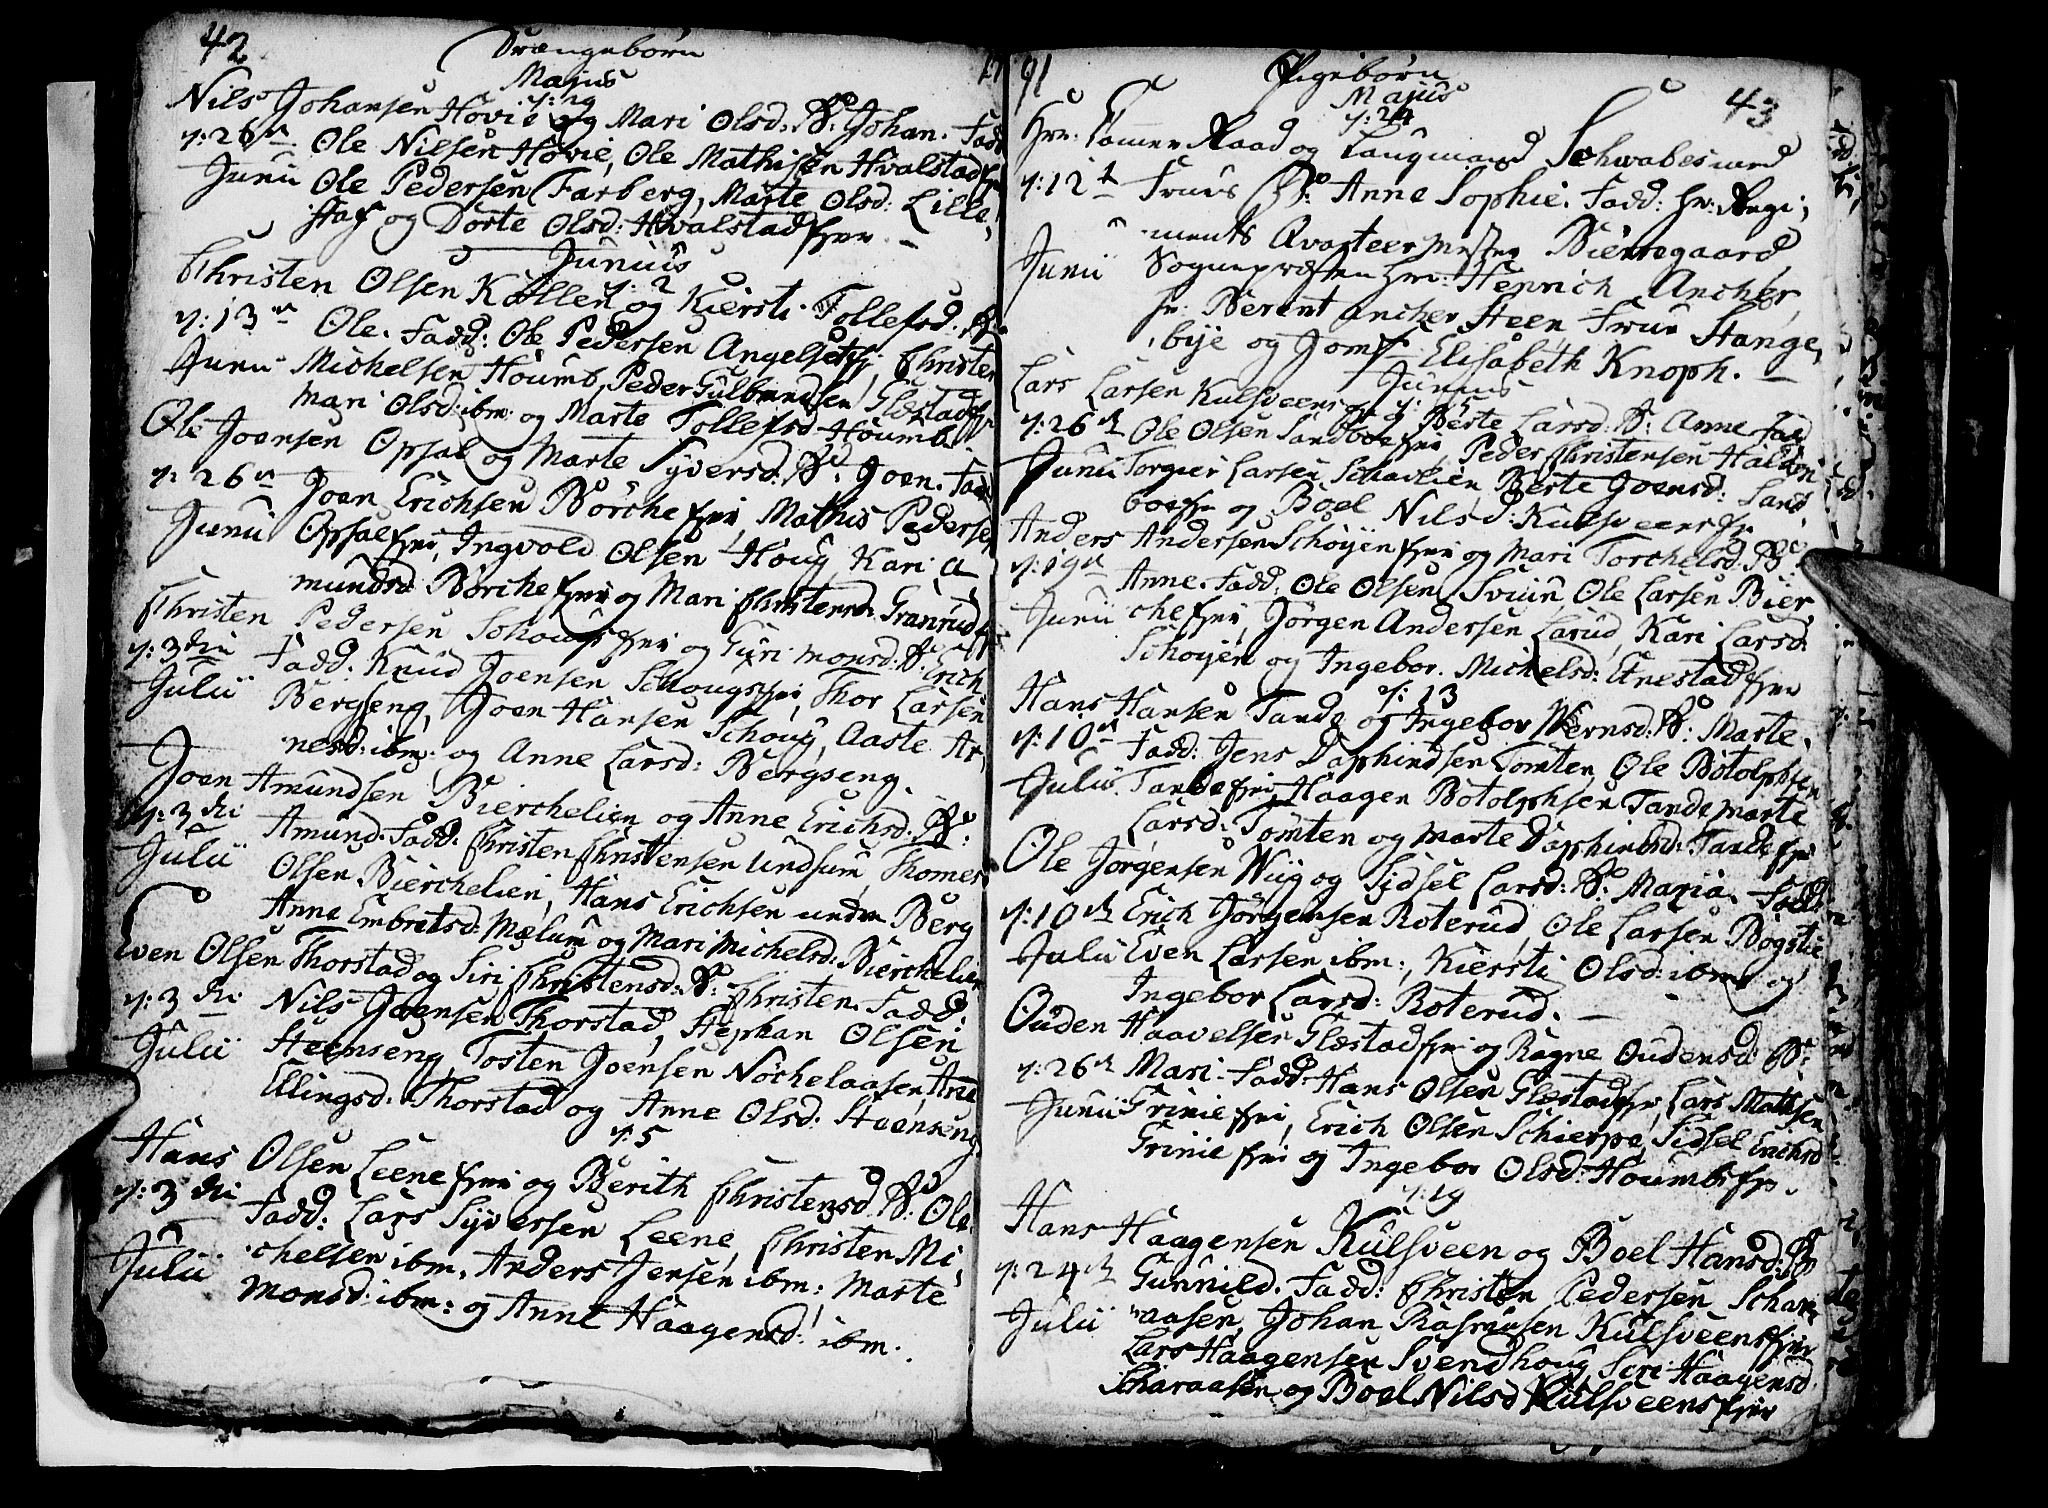 42
Drængebørn
17
Majus
d: 29
Nils Johansen Hovie og Mari Olsd: B: Johan. Fadd
d: 26de Ole Nilsen Hovie, Ole Mathisen Hvalstad
Junii Ole Pedersen Farberg, Marte Olsd: Lille,
og Dorte Olsd: Hvalstad
Junius
d: 2
Christen Olsen Kallen og Kiersti Tollefsd: B:
d: 13de Ole. Fadd: Ole Pedersen Angelset, Christen
Junii Michelsen Houmb, Peder Gulbrandsen Glæstad
Mari Olsd: ibm: og Marte Tollefsd Houmb.
Ole Joensen Opsal og Marte Syversd: B: Joen. Fadd
d: 26de Joen Erichsen Børche, Mathis Pedersen
Junii Opsal, Ingvold Olsen Houg Kari A,
mundsd: Børche og Mari Christensd: Granrud
Christen Pedersen Schougs og Guri Monsd: B: Erich
d: 3die Fadd: Knud Joensen Schougs, Thor Larsen
Julii Bergseng, Joen Hansen Schoug, Aaste Ar,
nesd: ibm: og Anne Larsd: Bergseng.
Joen Amundsen Bierchelien og Anne Erichsd: B:
d: 3die Amund. Fadd: Christen Christensen Undsum, Thomes
Julii Olsen Bierchelien, Hans Erichsen under Berg
Anne Embretsd: Mælum og Mari Michelsd: Bierchelien
Even Olsen Thorstad og Siri Christensd: B: Christen. Fadd:
d: 3die Nils Joensen Thorstad, Stephan Olsen
Julii Steenseng, Tosten Joensen Nøchelaasen,
Ellingsd: Thorstad og Anne Olsd: Steenseng
d: 5
Hans Olsen Leene og Berith Christensd: B: Ole.
d: 3die Fadd: Lars Syversen Leene, Christen Mi,
Julii chelsen ibm, Anders Jensen ibm: Marte
Monsd: ibm: og Anne Haagensd: ibm.
91
Pigebørn
43
Majus
d: 24
Hrr: Cammer Raad og Laugmand Schwabes med
d: 12te Frues B: Anne Sophie. Fadd: Hr: Regi,
ments Qvarteermester Bierregaard
Junii Sognepræsten Hr: Henrich Ancher,
Hr: Berent Ancher Steen Frue Stange,
bye og Jomf Elisabeth Knoph.
Junius
Lars Larsen Kulsveens og Berte Larsd: B: Anne Fadd
d: 26de Ole Olsen Sandboe, Peder Christensen
Junii Torgier Larsen, Berte Joensd: Sand,
boe og Boel Nilsd: Kulsveens
Anders Andersen Schøyen og Mari Torchelsd: B:
d: 19de Anne. Fadd: Ole Olsen Sviin, Ole Larsen Bier,
Junii che, Jørgen Andersen Larud, Kari Larsd:
Schøyen og Ingebor. Michelsd: Enestad
d: 13
Hans Hansen Tande og Ingebor B: Marte.
d: 10de Fadd: Jens Daphindsen Tomten, Ole Botolphsen
Julii Tande, Haagen Botolphsen Tande Marte
Larsd: Tomten og Marte Daphindsd: Tande
Ole Jørgensen Wiig og Sidsel Larsd: B: Maria. Fadd
d: 10de Erich Jørgensen Roterud, Ole Larsen Bogstie
Julii Even Larsen ibm:, Kiersti Olsd: ibm og
Ingebor Larsd: Roterud.
Ouden Haavelsen Glæstad og Ragne Oudensd: B:
d: 26de Mari. Fadd: Hans Olsen Glæstad, Lars Mathsen
Junii Grinie, Erich Olsen Schierpe, Sidsel Erichsd
Grinie og Ingebor Olsd: Houmbs
d: 19
Hans Haagensen Kulsveen og Boel Hansd: B
d: 24de Gunnild. Fadd: Christen Pedersen Schar
Julii aasen, Johan Rasmusen Kulsveens
Lars Haagensen Svendhoug, Siri Haagensd
Scharaasen og Boel Nilsd Kulsveens